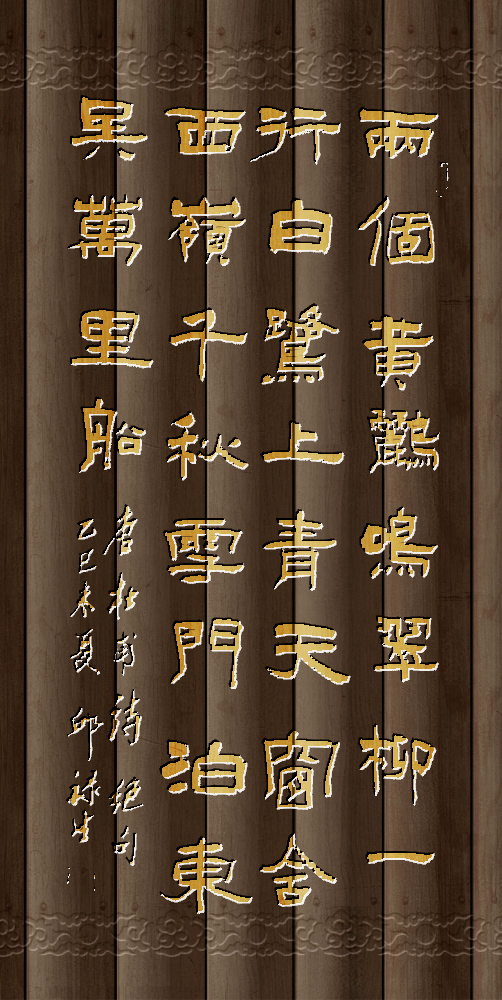 兩個黃鸝鳴翠柳一
行白鷺上青天窗含
西嶺千秋雪門泊東
吳萬里船
唐杜甫詩絕句
乙巳末夏邱祿生